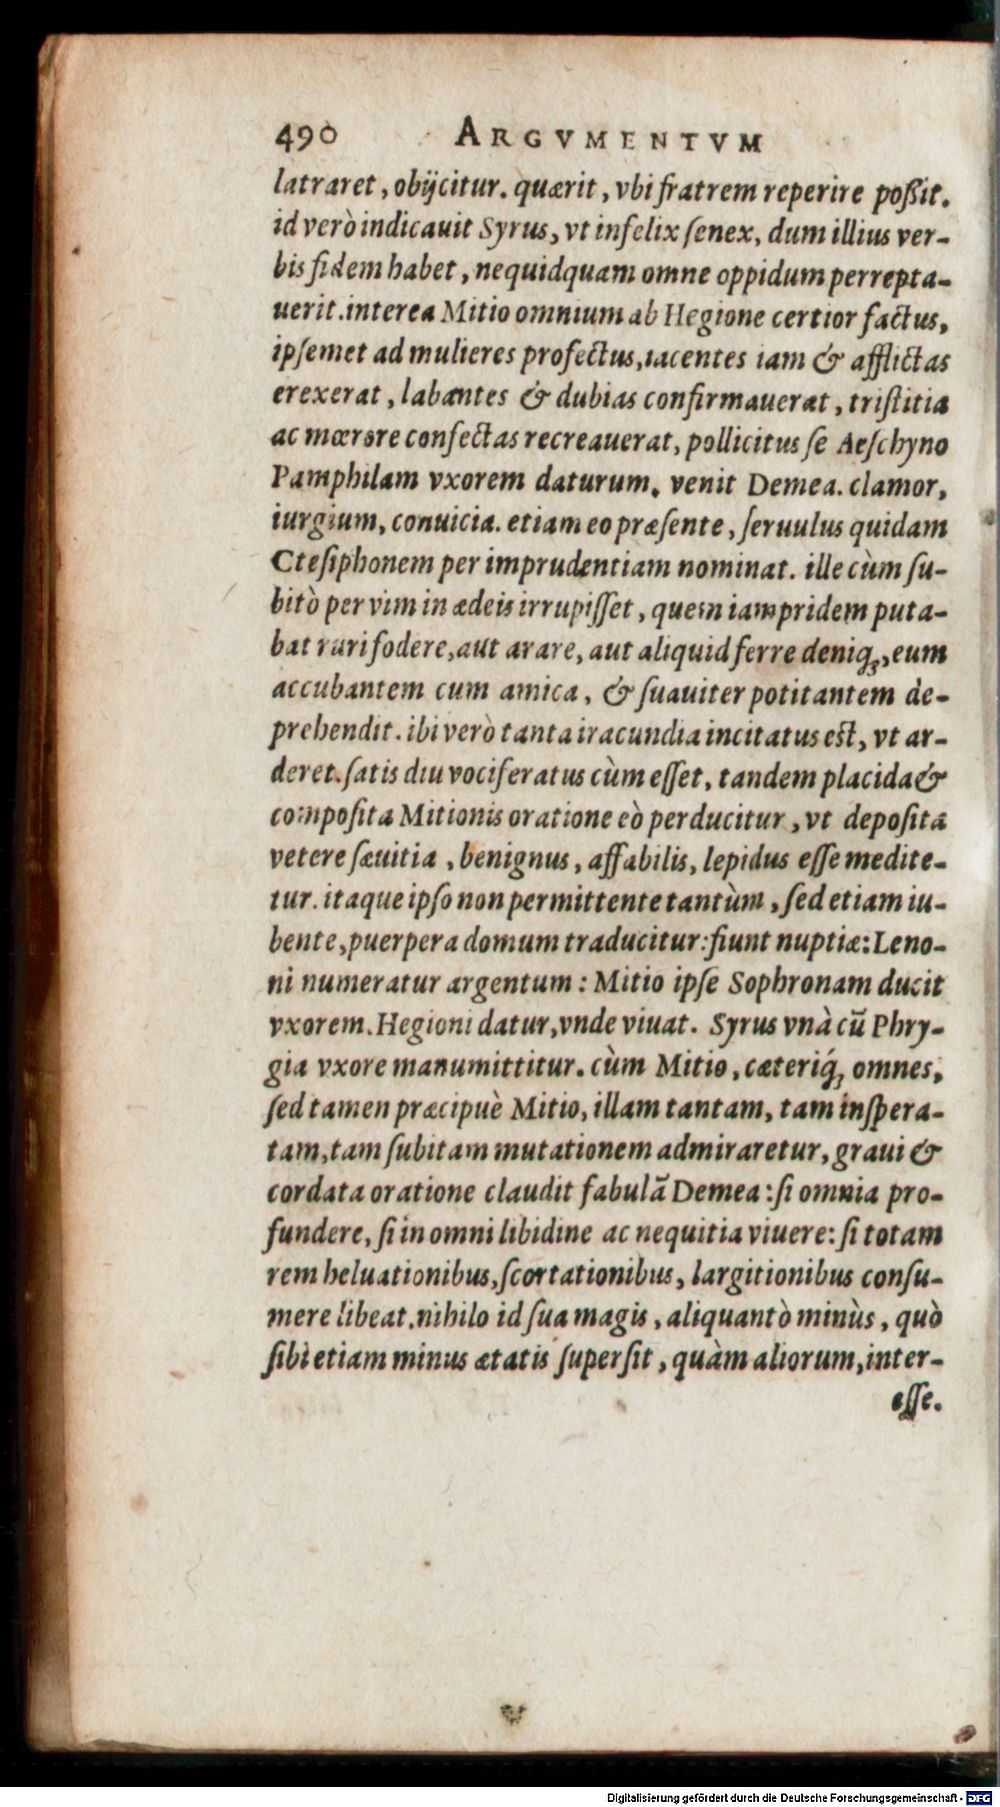 490 ARGVMENTVM
latraret, obijcitur. quærit, vbi fratrem reperire poßit.
id verò indicauit Syrus, vt infelix ſenex, dum illius ver-
bis fidem habet, nequidquam omne oppidum perrepta-
uerit. interea Mitio omnium ab Hegione certior factus,
ipſemet ad mulieres profectus, iacentes iam & afflictas
erexerat, labantes & dubias confirmauerat, triſtitia
ac mœrore confectas recreauerat, pollicitus ſe Aeſchyno
Pamphilam vxorem daturum. venit Demea. clamor,
iurgium, conuicia. etiam eo præſente, ſeruulus quidam
Cteſiphonem per imprudentiam nominat. ille cùm ſu-
bitò per vim in ædeis irrupiſſet, quem iampridem puta-
bat ruri fodere, aut arare, aut aliquid ferre deniq;, eum
accubantem cum amica, & ſuauiter potitantem de-
prehendit. ibi verò tanta iracundia incitatus eſt, vt ar-
deret. ſatis diu vociferatus cùm eſſet, tandem placida &
compoſita Mitionis oratione eò perducitur, vt depoſita
vetere ſæuitia, benignus, affabilis, lepidus eſſe medite-
tur. itaque ipſo non permittente tantùm, ſed etiam iu-
bente, puerpera domum traducitur: fiunt nuptiæ: Leno-
ni numeratur argentum: Mitio ipſe Sophronam ducit
vxorem. Hegioni datur, vnde viuat. Syrus vnà cū Phry-
gia vxore manumittitur. cùm Mitio, cæteriq́; omnes,
ſed tamen præcipuè Mitio, illam tantam, tam inſpera-
tam, tam ſubitam mutationem admiraretur, graui &
cordata oratione claudit fabulā Demea: ſi omnia pro-
fundere, ſi in omni libidine ac nequitia viuere: ſi totam
rem heluationibus, ſcortationibus, largitionibus conſu-
mere libeat. nihilo id ſua magis, aliquantò minùs, quò
ſibi etiam minus ætatis ſuperſit, quàm aliorum, inter-
eſſe.
Digitalisierung gefördert durch die Deutsche Forschungsgemeinschaft - DFG